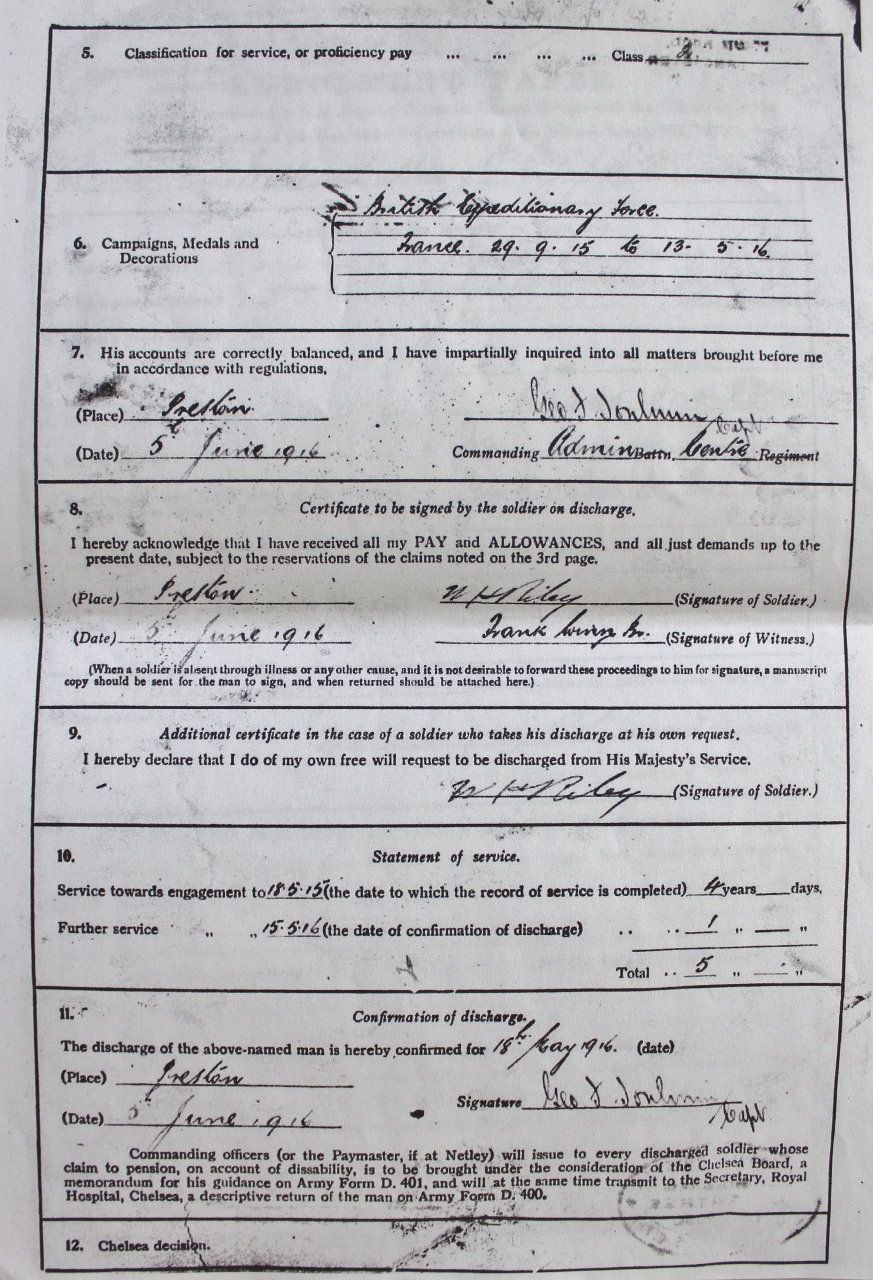 5. Classification for service, or proficiency pay ... ... ... ... Class 2
British Expeditionary Force.
6. Campaigns, Medals and Decorations
France. 29. 9. 15 to 13. 5. 16.
7. His accounts are correctly balanced, and I have impartially inquired into all matters brought before me
in accordance with regulations.
(Place) Preston. Geo F Toulmin Capt
(Date) 5th June 1916 Commanding Admin Battn. Centre Regiment
8. Certificate to be signed by the soldier on discharge.
I hereby acknowledge that I have received all my PAY and ALLOWANCES, and all just demands up to the
present date, subject to the reservations of the claims noted on the 3rd page.
(Place) Preston. W H Riley (Signature of Soldier.)
(Date) 5 June 1916 Frank (Signature of Witness.)
(When a soldier is absent through illness or any other cause, and it is not desirable to forward these proceedings to him for signature, a manuscript
copy should be sent for the man to sign, and when returned should be attached here.)
9. Additional certificate in the case of a soldier who takes his discharge at his own request.
I hereby declare that I do of my own free will request to be discharged from His Majesty's Service.
W H Riley (Signature of Soldier.)
10. Statement of service.
Service towards engagement to 18.5.15 (the date to which the record of service is completed) 4 years days,
Further service " " 15.5.16 (the date of confirmation of discharge) .. .. 1 " — "
Total .. 5 " — "
11. Confirmation of discharge.
The discharge of the above-named man is hereby confirmed for 18th May 1916. (date)
(Place) Preston
Signature Geo F Toulmin Capt
(Date) 5th June 1916
Commanding officers (or the Paymaster, if at Netley) will issue to every discharged soldier whose
claim to pension, on account of dissability, is to be brought under the consideration of the Chelsea Board, a
memorandum for his guidance on Army Form D. 401, and will at the same time transmit to the Secretary, Royal
Hospital, Chelsea, a descriptive return of the man on Army Form D. 400.
12. Chelsea decision.